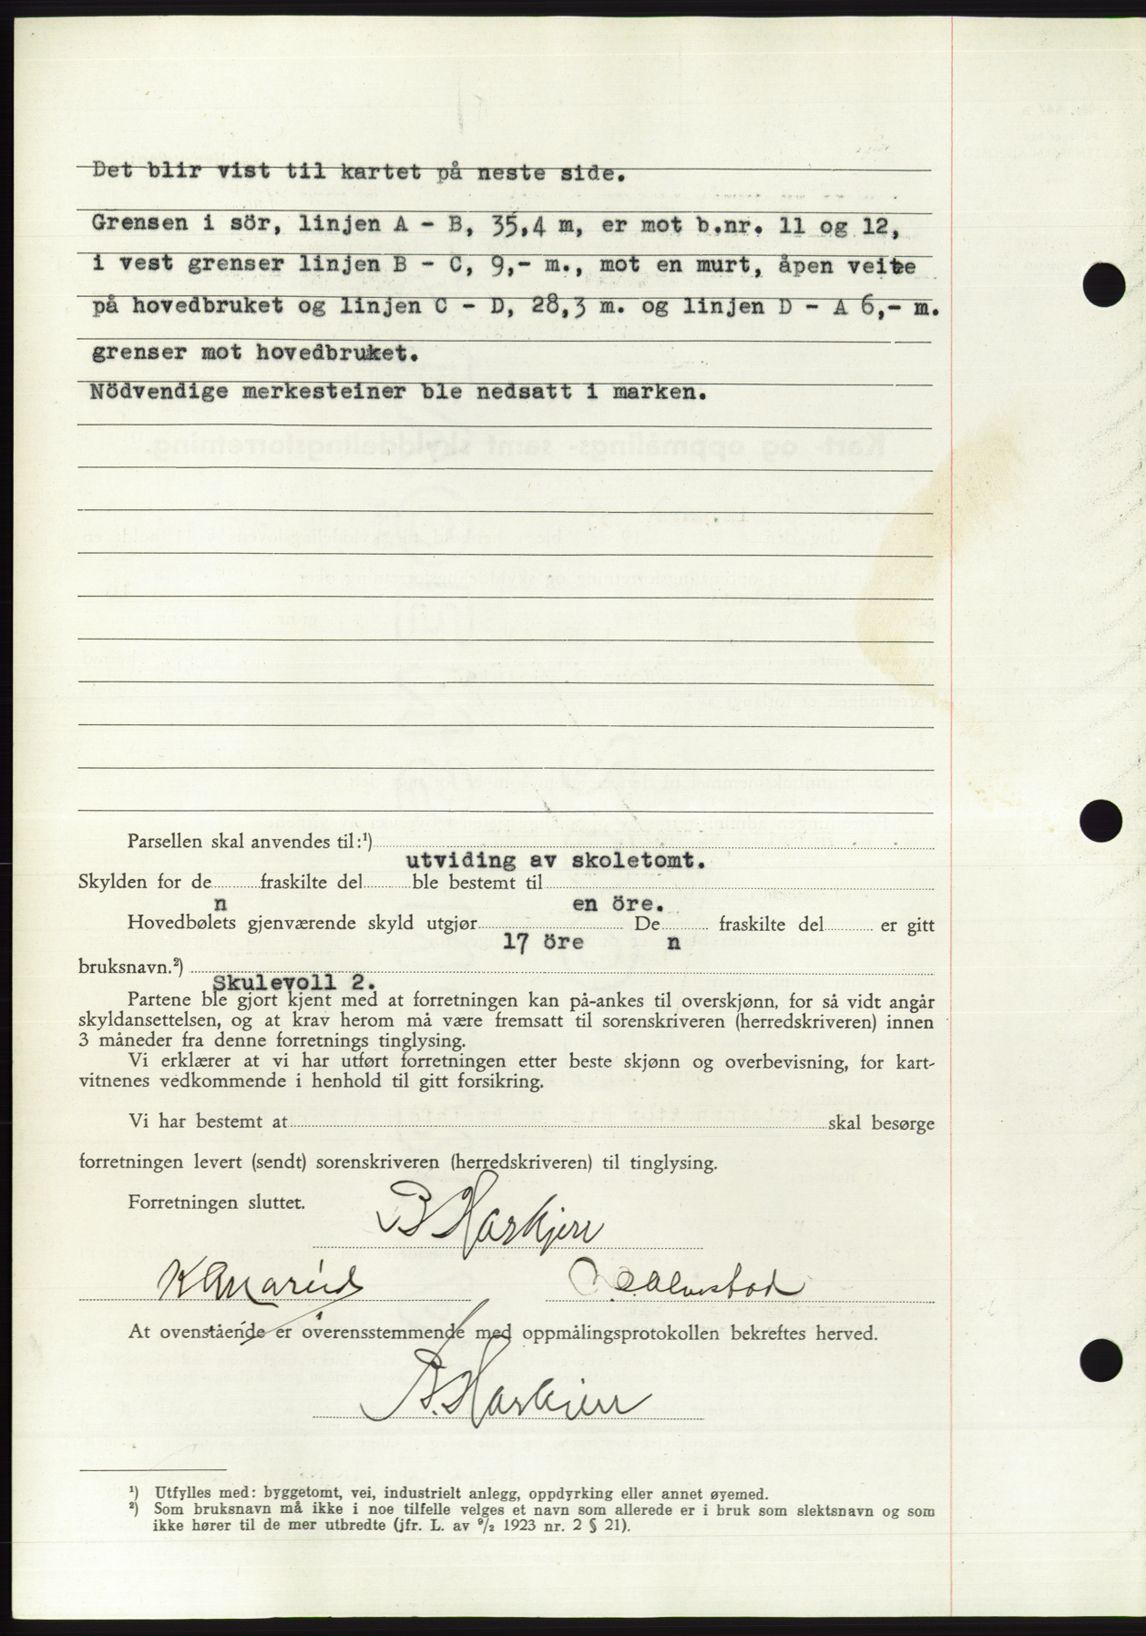 Det blir vist til kartet på neste side.
Grensen i sör, linjen A - B, 35,4 m, er mot b.nr. 11 og 12,
i vest grenser linjen B - C, 9,- m., mot en murt, åpen veite
på hovedbruket og linjen C - D, 28,3 m. og linjen D - A 6,- m.
grenser mot hovedbruket.
Nödvendige merkesteiner ble nedsatt i marken.
Parsellen skal anvendes til:¹)
utviding av skoletomt.
Skylden for de fraskilte del ble bestemt til
n en öre.
Hovedbølets gjenværende skyld utgjør De fraskilte del er gitt
17 öre n
bruksnavn.²)
Skulevoll 2.
Partene ble gjort kjent med at forretningen kan på-ankes til overskjønn, for så vidt angår
skyldansettelsen, og at krav herom må være fremsatt til sorenskriveren (herredskriveren) innen
3 måneder fra denne forretnings tinglysing.
Vi erklærer at vi har utført forretningen etter beste skjønn og overbevisning, for kart-
vitnenes vedkommende i henhold til gitt forsikring.
Vi har bestemt at skal besørge
forretningen levert (sendt) sorenskriveren (herredskriveren) til tinglysing.
Forretningen sluttet.
At ovenstående er overensstemmende med oppmålingsprotokollen bekreftes herved.
¹) Utfylles med: byggetomt, vei, industrielt anlegg, oppdyrking eller annet øyemed.
²) Som bruksnavn må ikke i noe tilfelle velges et navn som allerede er i bruk som slektsnavn og som
ikke hører til de mer utbredte (jfr. L. av ⁹/₂ 1923 nr. 2 § 21).